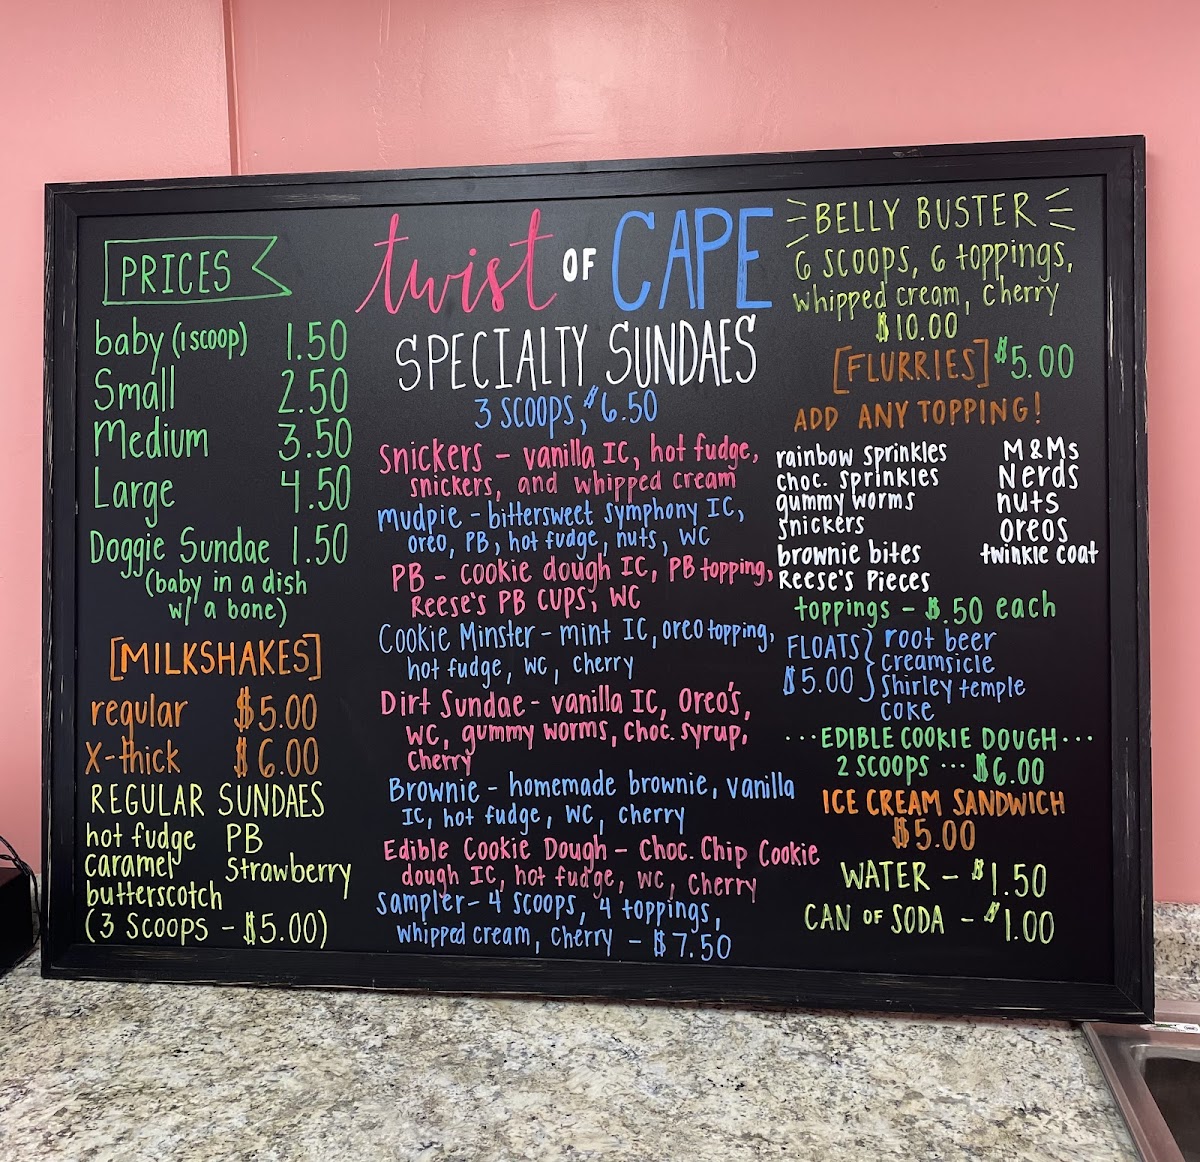 PRICES
baby (1 scoop) 1.50
Small 2.50
Medium 3.50
Large 4.50
Doggie Sundae 1.50
(baby in a dish
w/ a bone)
[MILKSHAKES]
regular $5.00
X-thick $6.00
REGULAR SUNDAES
hot fudge PB
caramel Strawberry
butterscotch
(3 SCOOPS - $5.00)
twist OF CAPE
SPECIALTY SUNDAES
3 SCOOPS, $6.50
Snickers - vanilla IC, hot fudge,
snickers, and whipped cream
mudpie - bittersweet symphony IC,
oreo, PB, hot fudge, nuts, WC
PB - cookie dough IC, PB topping,
Reese's PB CUPS, WC
Cookie Minster - mint IC, oreo topping,
hot fudge, WC, cherry
Dirt Sundae - vanilla IC, Oreo's,
WC, gummy worms, choc. syrup,
Cherry
Brownie - homemade brownie, vanilla
IC, hot fudge, WC, cherry
Edible Cookie Dough - Choc. Chip Cookie
dough IC, hot fudge, WC, Cherry
Sampler - 4 scoops, 4 toppings,
whipped cream, Cherry - $7.50
BELLY BUSTER
6 scoops, 6 toppings,
whipped cream, Cherry
$10.00
[FLURRIES] $5.00
ADD ANY TOPPING!
rainbow sprinkles M&Ms
choc. sprinkles Nerds
gummy worms nuts
snickers oreos
brownie bites twinkle coat
Reese's Pieces
toppings - $.50 each
FLOATS } root beer
$5.00 creamsicle
Shirley temple
coke
...EDIBLE COOKIE DOUGH...
2 SCOOPS ... $6.00
ICE CREAM SANDWICH
$5.00
WATER - $1.50
CAN OF SODA - $1.00